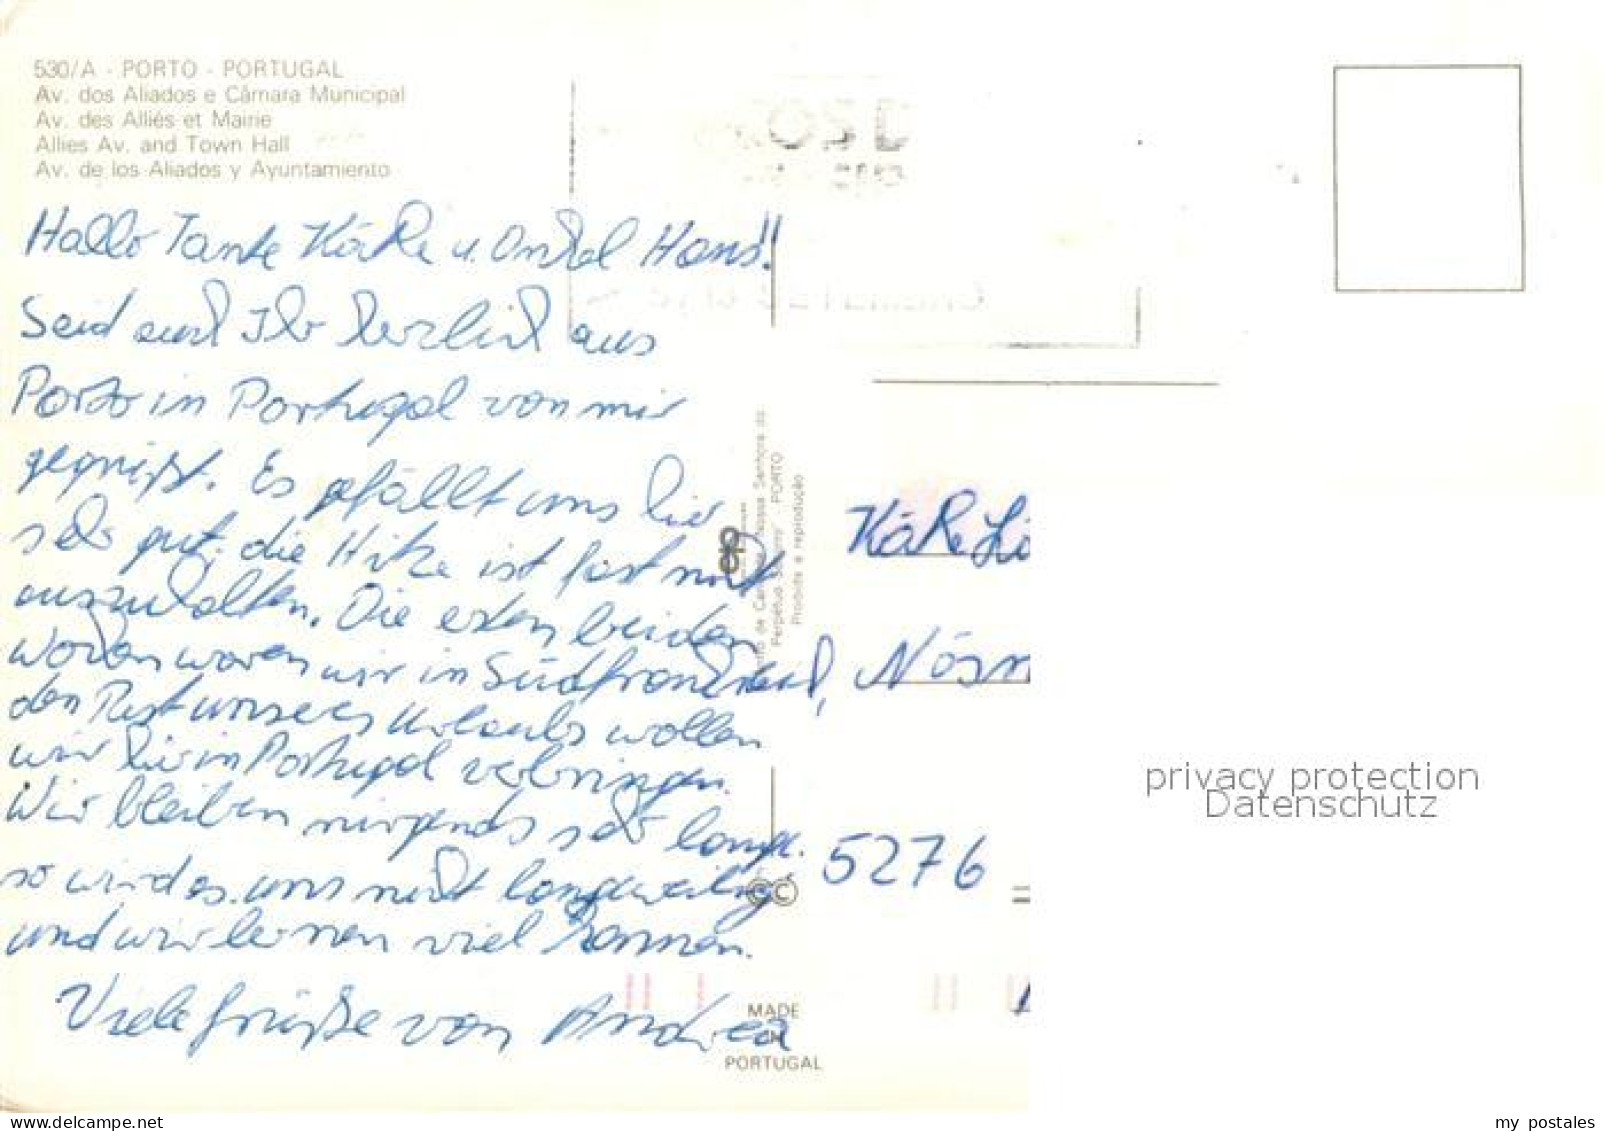 530/A - PORTO - PORTUGAL
Av. dos Aliados e Câmara Municipal
Av. des Alliés et Mairie
Allies Av. and Town Hall
Av. de los Aliados y Ayuntamiento
Hallo Tante Käthe u. Onkel Hans!!
Seid auch Ihr herzlich aus
Porto in Portugal von mir
gegrüßt. Es gefällt uns hier
sehr gut, die Hitze ist fast nicht
auszuhalten. Die ersten beiden
Wochen waren wir in Südfrankreich,
den Rest unseres Urlaubs wollen
wir hier in Portugal verbringen.
Wir bleiben nirgends sehr lange.
so wird es uns nicht langweilig
und wir lernen viel kennen.
Viele Grüße von Andrea
Perpétuo Socorro - PORTO
Proibida a reprodução
cp
CC
MADE
IN
PORTUGAL
Käthe Li
5276
privacy protection
Datenschutz
my postales